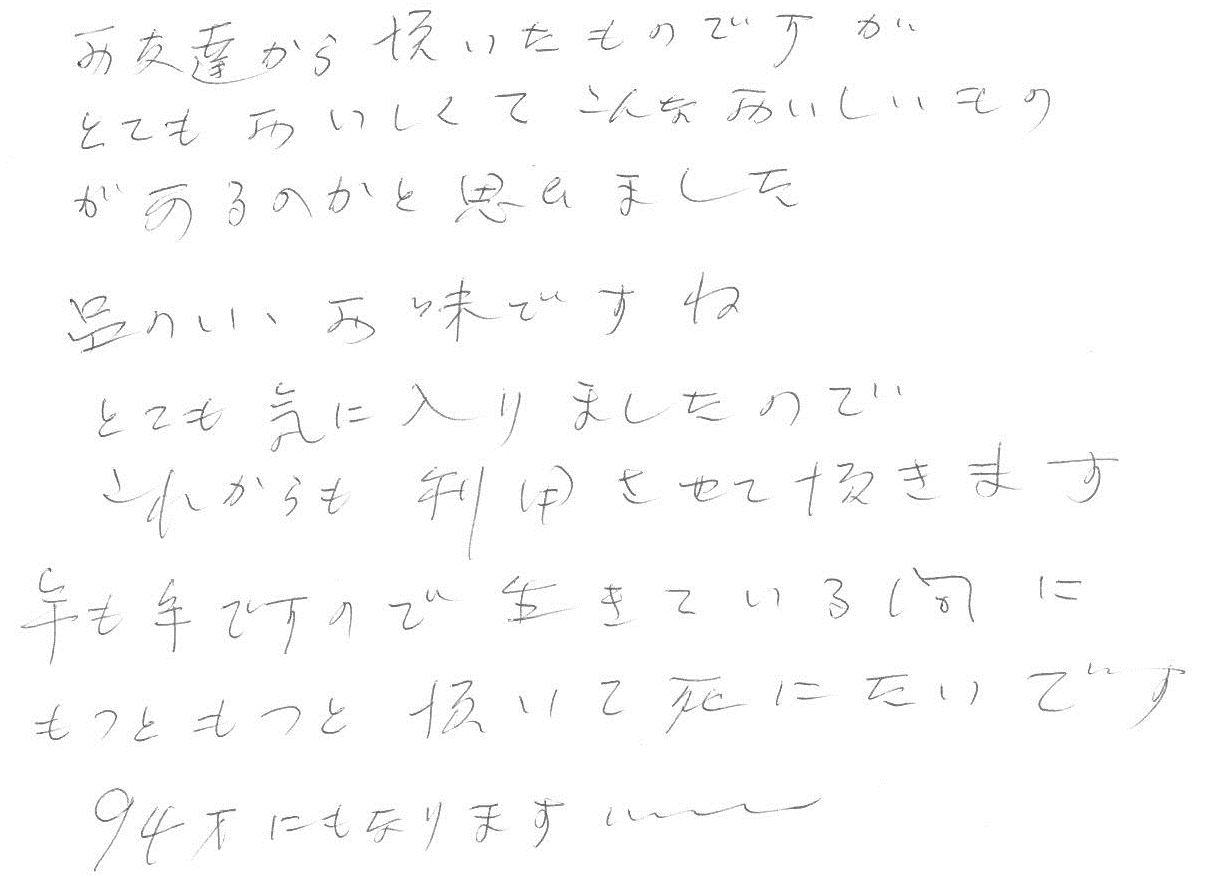 お友達から頂いたものですが
とてもおいしくてこんなおいしいもの
があるのかと思いました
品のいいお味ですね
とても気に入りましたので
これからも利用させて頂きます
年も年ですので生きている内に
もっともっと頂いて死にたいです
94才にもなります